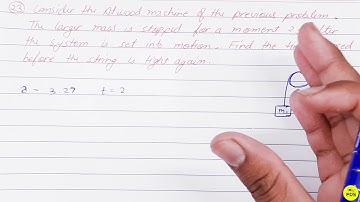 23) Consider the Atwood machine of the previous problem.
The larger mass is stopped for a moment 2 after
the system is set into motion. Find the elapsed
before the string is tight again.
a - 3.27 t = 2
m₁